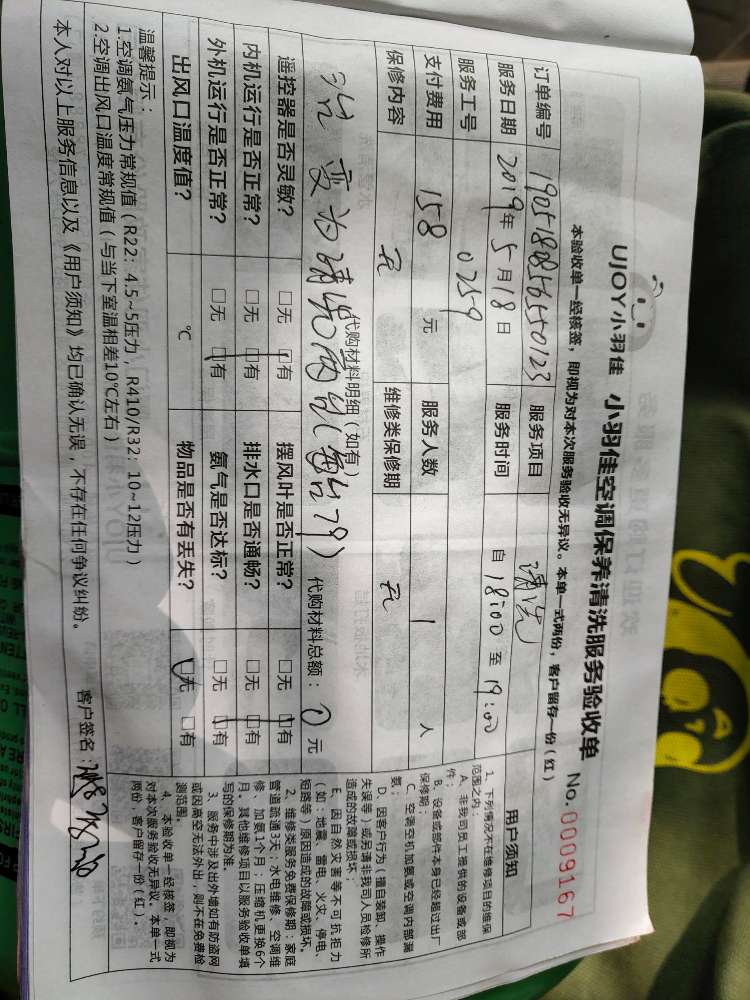 UJOY小羽佳 小羽佳空调保养清洗服务验收单 No. 0009167
本验收单一经核签，即视为对本次服务验收无异议。本单一式两份，客户留存一份（红）
订单编号 1905180856550123 服务项目 清洗
服务日期 2019年5月18日 服务时间 自 18:00 至 19:00
服务工号 0259
支付费用 158 元 服务人数 1 人
保修内容 无 维修类保修期 无
代购材料明细（如有） 代购材料总额：0元
变为清洗两
遥控器是否灵敏？ □无 □有 摆风叶是否正常？ □无 □有
内机运行是否正常？ □无 □有 排水口是否通畅？ □无 □有
外机运行是否正常？ □无 □有 氨气是否达标？ □无 □有
出风口温度值？ ℃ 物品是否有丢失？ □无 □有
温馨提示：
1.空调氨气压力常规值（R22：4.5~5压力，R410/R32：10~12压力）
2.空调出风口温度常规值（与当下室温相差10℃左右）
本人对以上服务信息以及《用户须知》均已确认无误，不存在任何争议纠纷。 客户签名：
用户须知
1、下列情况不在维修项目的维保
范围之内：
A、非我司员工提供的设备或部
件；
B、设备或部件本身已经超过出厂
保修期；
C、空调空机加氨或空调内部漏
氨；
D、因客户行为（擅自装卸、操作
失误等）或另请非我司人员检修所
造成的故障或损坏；
E、因自然灾害等不可抗拒力
（如：地震、雷电、火灾、停电、
短路等）原因造成的故障或损坏。
2、维修类服务免费保修期：家庭
管道疏通3天；水电维修、空调维
修、加氨1个月；压缩机更换6个
月。其他维修项目以服务验收单填
写的保修期为准。
3、服务中涉及出外墙如有防盗网
或因高空无法外出，则不在免费检
测范围。
4、本验收单一经核签，即视为
对本次服务验收无异议。本单一式
两份，客户留存一份（红）。